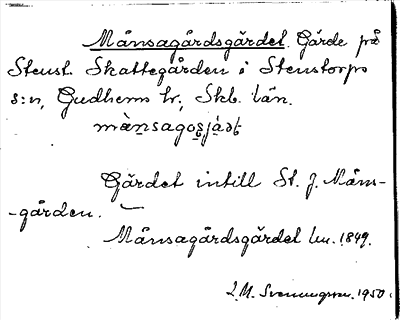 Månsagårdsgärdet. Gärde på
Stenst. Skattegården i Stenstorps
s:n, Gudhems hr, Skb. län.
Gärdet intill St. J. Måns-
-gården.
Månsagårdsgärdet lm. 1849.
J. M. Svenungsson. 1950.